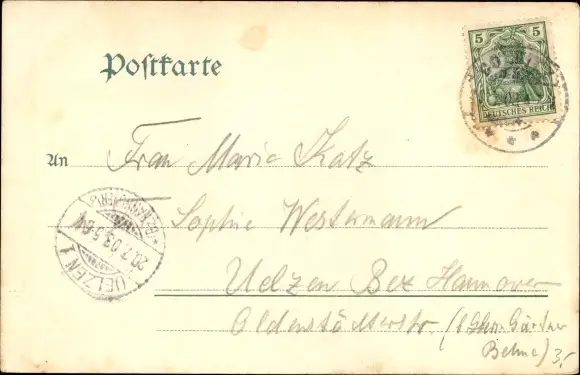 Postkarte
5 5
DEUTSCHES REICH
An Frau Marie Katz
Sophie Westermann
UELZEN 1
20.7.03.5-6 N
(BZ. HANNOVER)
Uelzen Bez Hannover
Oldenstädterstr. (b Gärtner
Behne) 3.